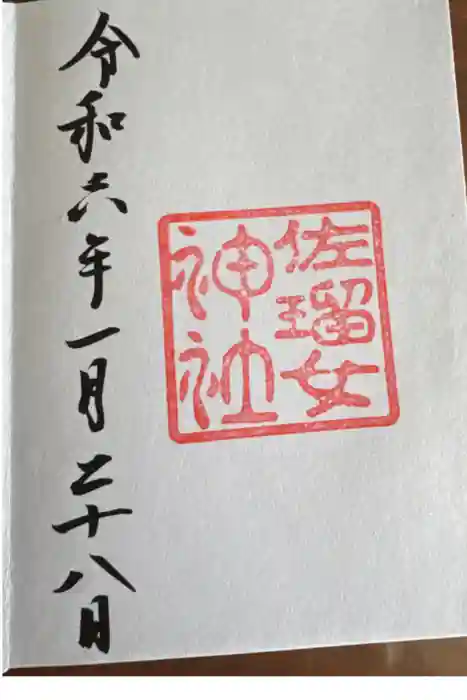 佐瑠女
神社
令和六年一月二十八月